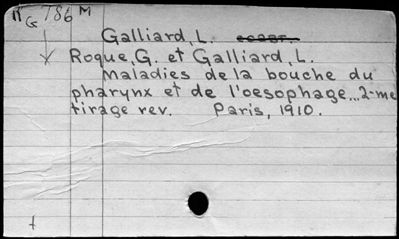 RG T86 M
Galliard, L.
Roque, G. et Galliard, L.
Maladies de la bouche du
pharynx et de l'oesophage...2-me
tirage rev. Paris, 1910.